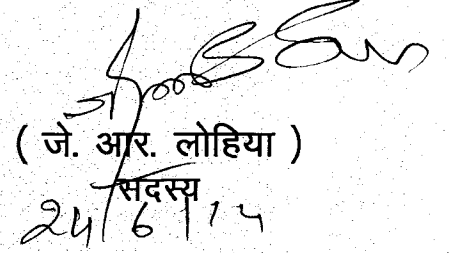 ( जे. आर. लोहिया )
सदस्य
24/6/14